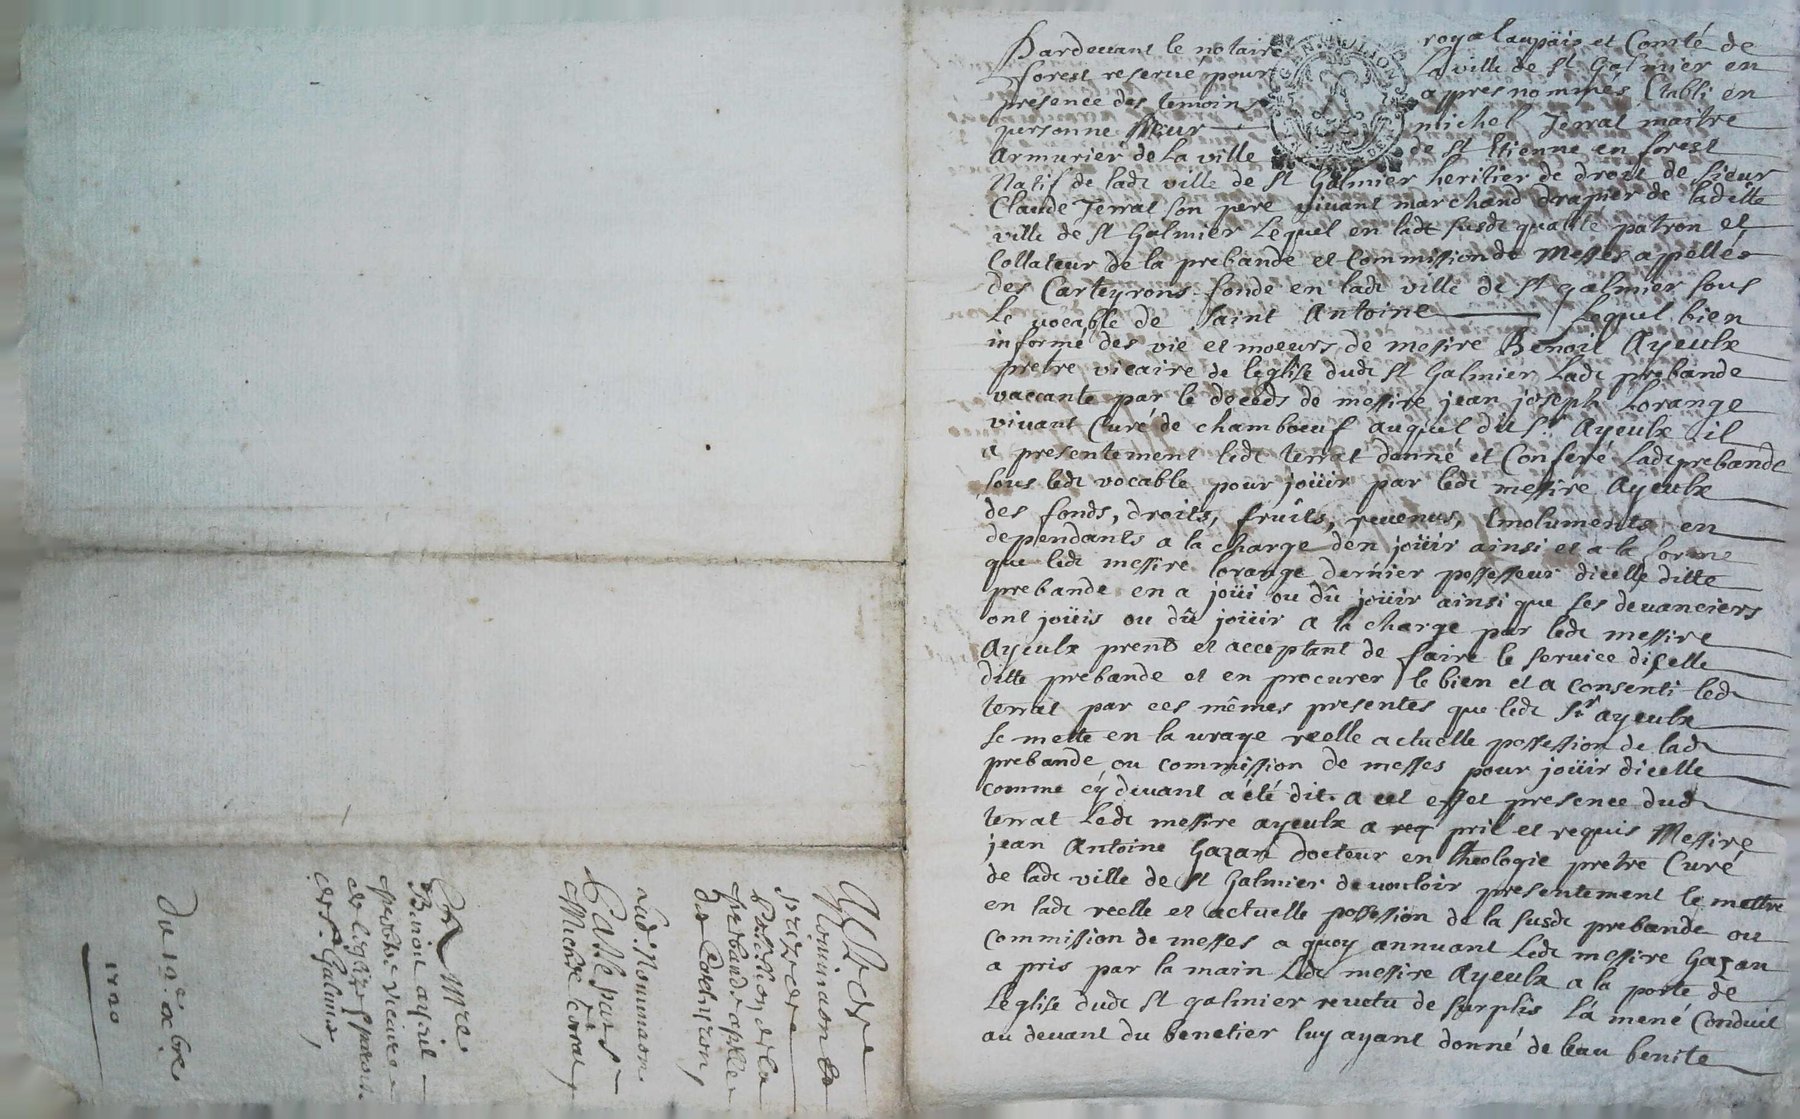 Pardevant le notaire royal aupaïs et Comté de
forest reservé pour la ville de St Galmier en
presence des temoins appres nommés Etabli en
personne sieur michel Terrat maitre
Armurier de la ville de St Etienne en forest
Natif de ladt ville de St Galmier heritier de droit de sieur
Claude Terrat son pere vivant marchand drapier de ladette
ville de St Galmier Lequel en ladt susdt qualité patron et
Collateur de la prebande et Commission de Messes appellée
des Carteyrons fondé en ladt ville de St galmier sous
Le vocable de saint Antoine Lequel bien
informé des vie et moeurs de messire Benoit Ayeulx
prêtre vicaire de leglise dudt St Galmier Ladt prebande
vaccante par le deceds de messire jean joseph Lorange
vivant Curé de chambœuf auquel dit Sr Ayeulx il
a presentement ledt terrat donné et Conferé Ladt prebande
sous ledt vocable pour joüir par ledt messire Ayeulx
des fonds, droits, fruits, revenus, Emoluments en
dependants a la charge den joüir ainsi et a la forme
que ledt messire lorange dernier possesseur dicelle ditte
prebande en a joüi ou dû joüir ainsi que ses devanciers
ont joüis ou dû joüir a la charge par ledt messire
Ayeulx prent et acceptant de faire le service dicelle
ditte prebande et en procurer le bien et a consenti ledt
terrat par ces mêmes presentes que ledt Sr ayeulx
se mette en la vraye reelle actuelle possession de ladt
prebande ou commission de messes pour joüir dicelle
comme cy devant a été dit. a cet effet presence dudt
terrat Ledt messire ayeulx a reqt prié et requis Messire
jean Antoine Gazan docteur en theologie pretre Curé
de ladt ville de St Galmier de vouloir presentement le mettre
en ladt reelle et actuelle possession de la susdt prebande ou
Commission de messes a quoy annuant Ledt messire Gazan
a pris par la main Ledt messire Ayeulx a la porte de
Leglise dudt St galmier revetu de surplis La mené Conduit
au devant du benetier luy ayant donné de leau benite
Acte de
Nominaon &
prize de
possession de la
prebande apellé
des Carteyrons
Lad. Nominaon
Passé par
Michel terrat
A Mre
Benoit ayeul
prebtre vicaire
de leglise
de St Galmier
Du 10e xbre
1720